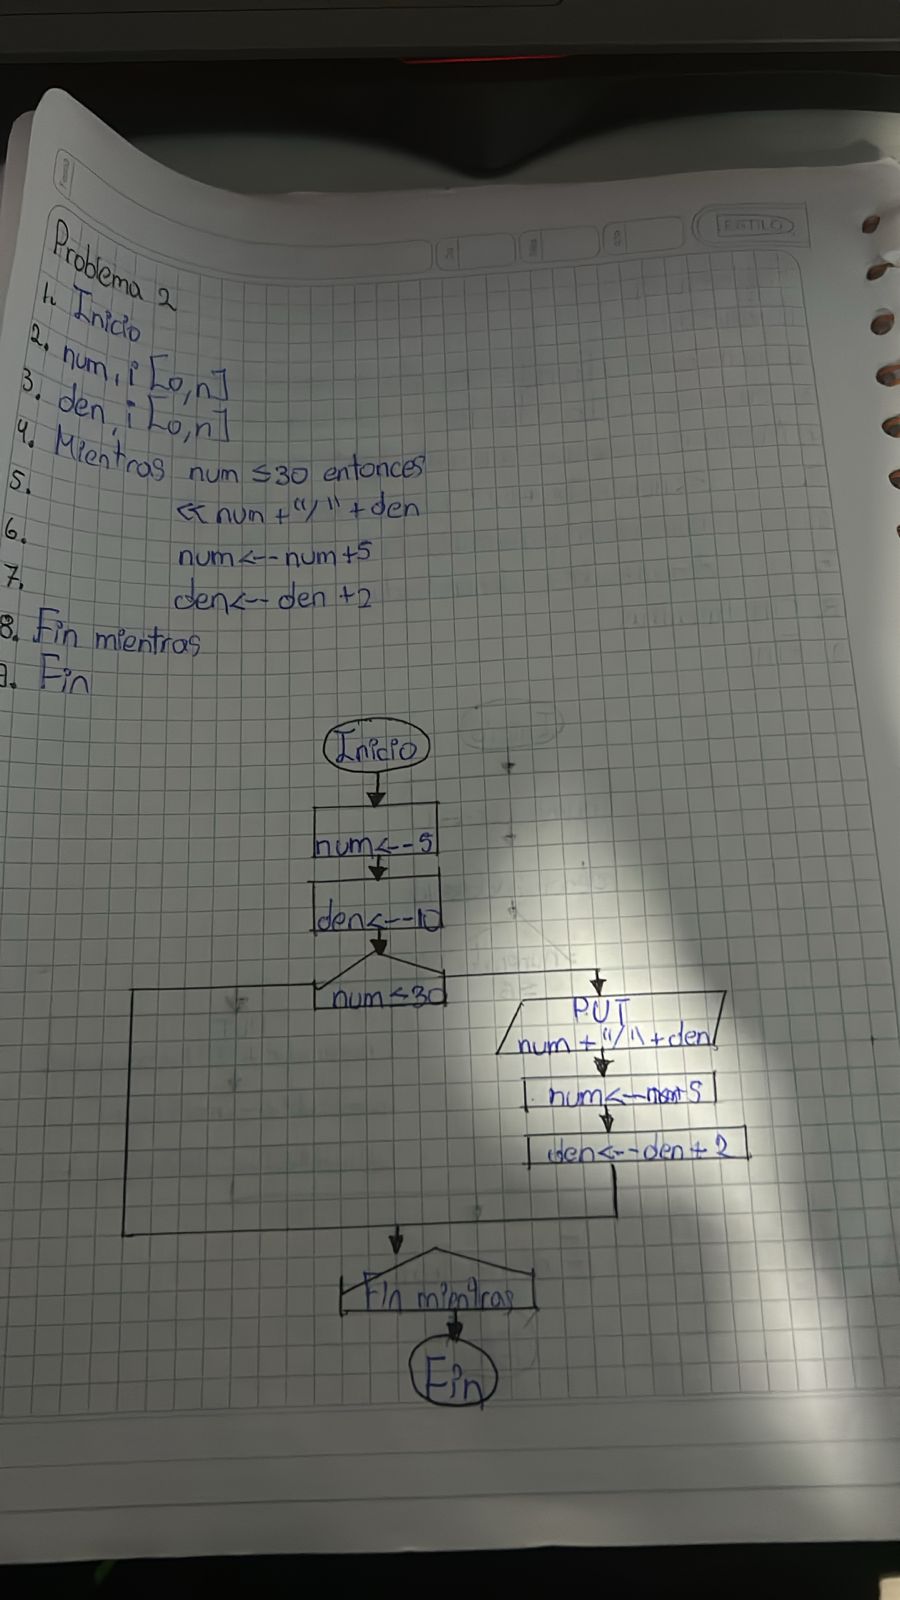 ESTILO
Problema 2
1. Inicio
2. num, i [0,n]
3. den, i [0,n]
4. Mientras num ≤30 entonces
5. << num + "/" + den
6. num <-- num+5
7. den <-- den +2
8. Fin mientras
9. Fin
Inicio
num <-- 5
den <-- 10
num ≤ 30
PUT
num + "/" + den
num <-- num+5
den <-- den + 2
Fin mientras
Fin